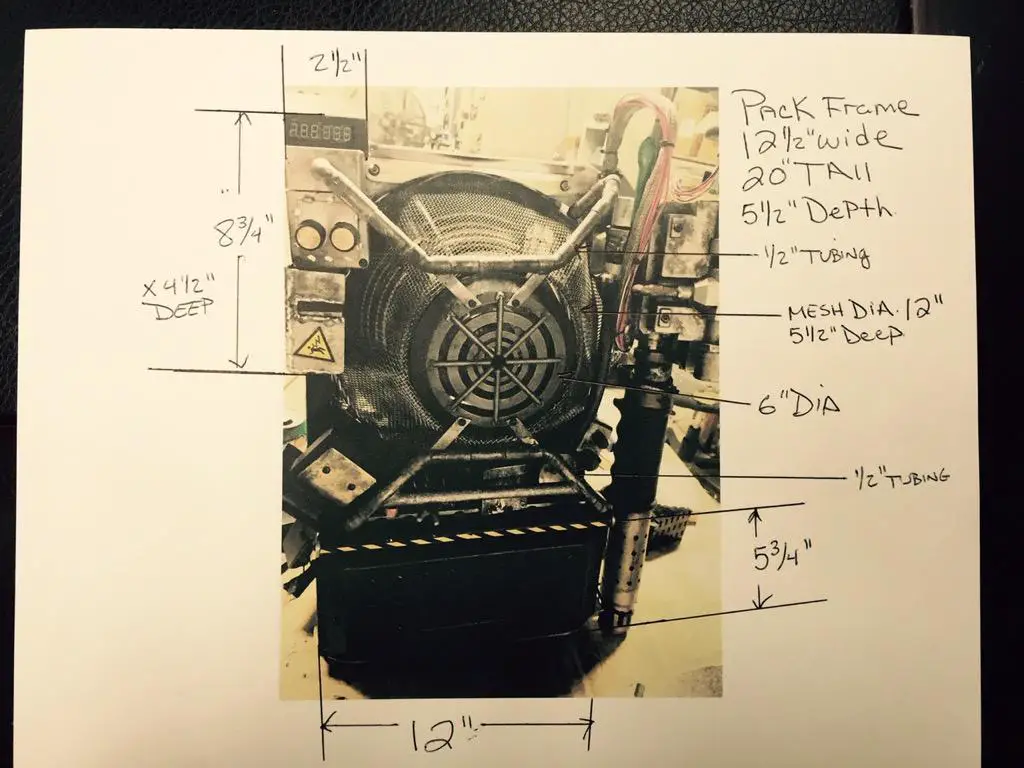 2 1/2"
PACK Frame
12 1/2" wide
20" TAll
5 1/2" DePth
8 3/4"
X 4 1/2"
DEEP
1/2" TUBINg
MESH DIA. 12"
5 1/2" DeeP
6" DIA
1/2" TUBING
5 3/4"
12"